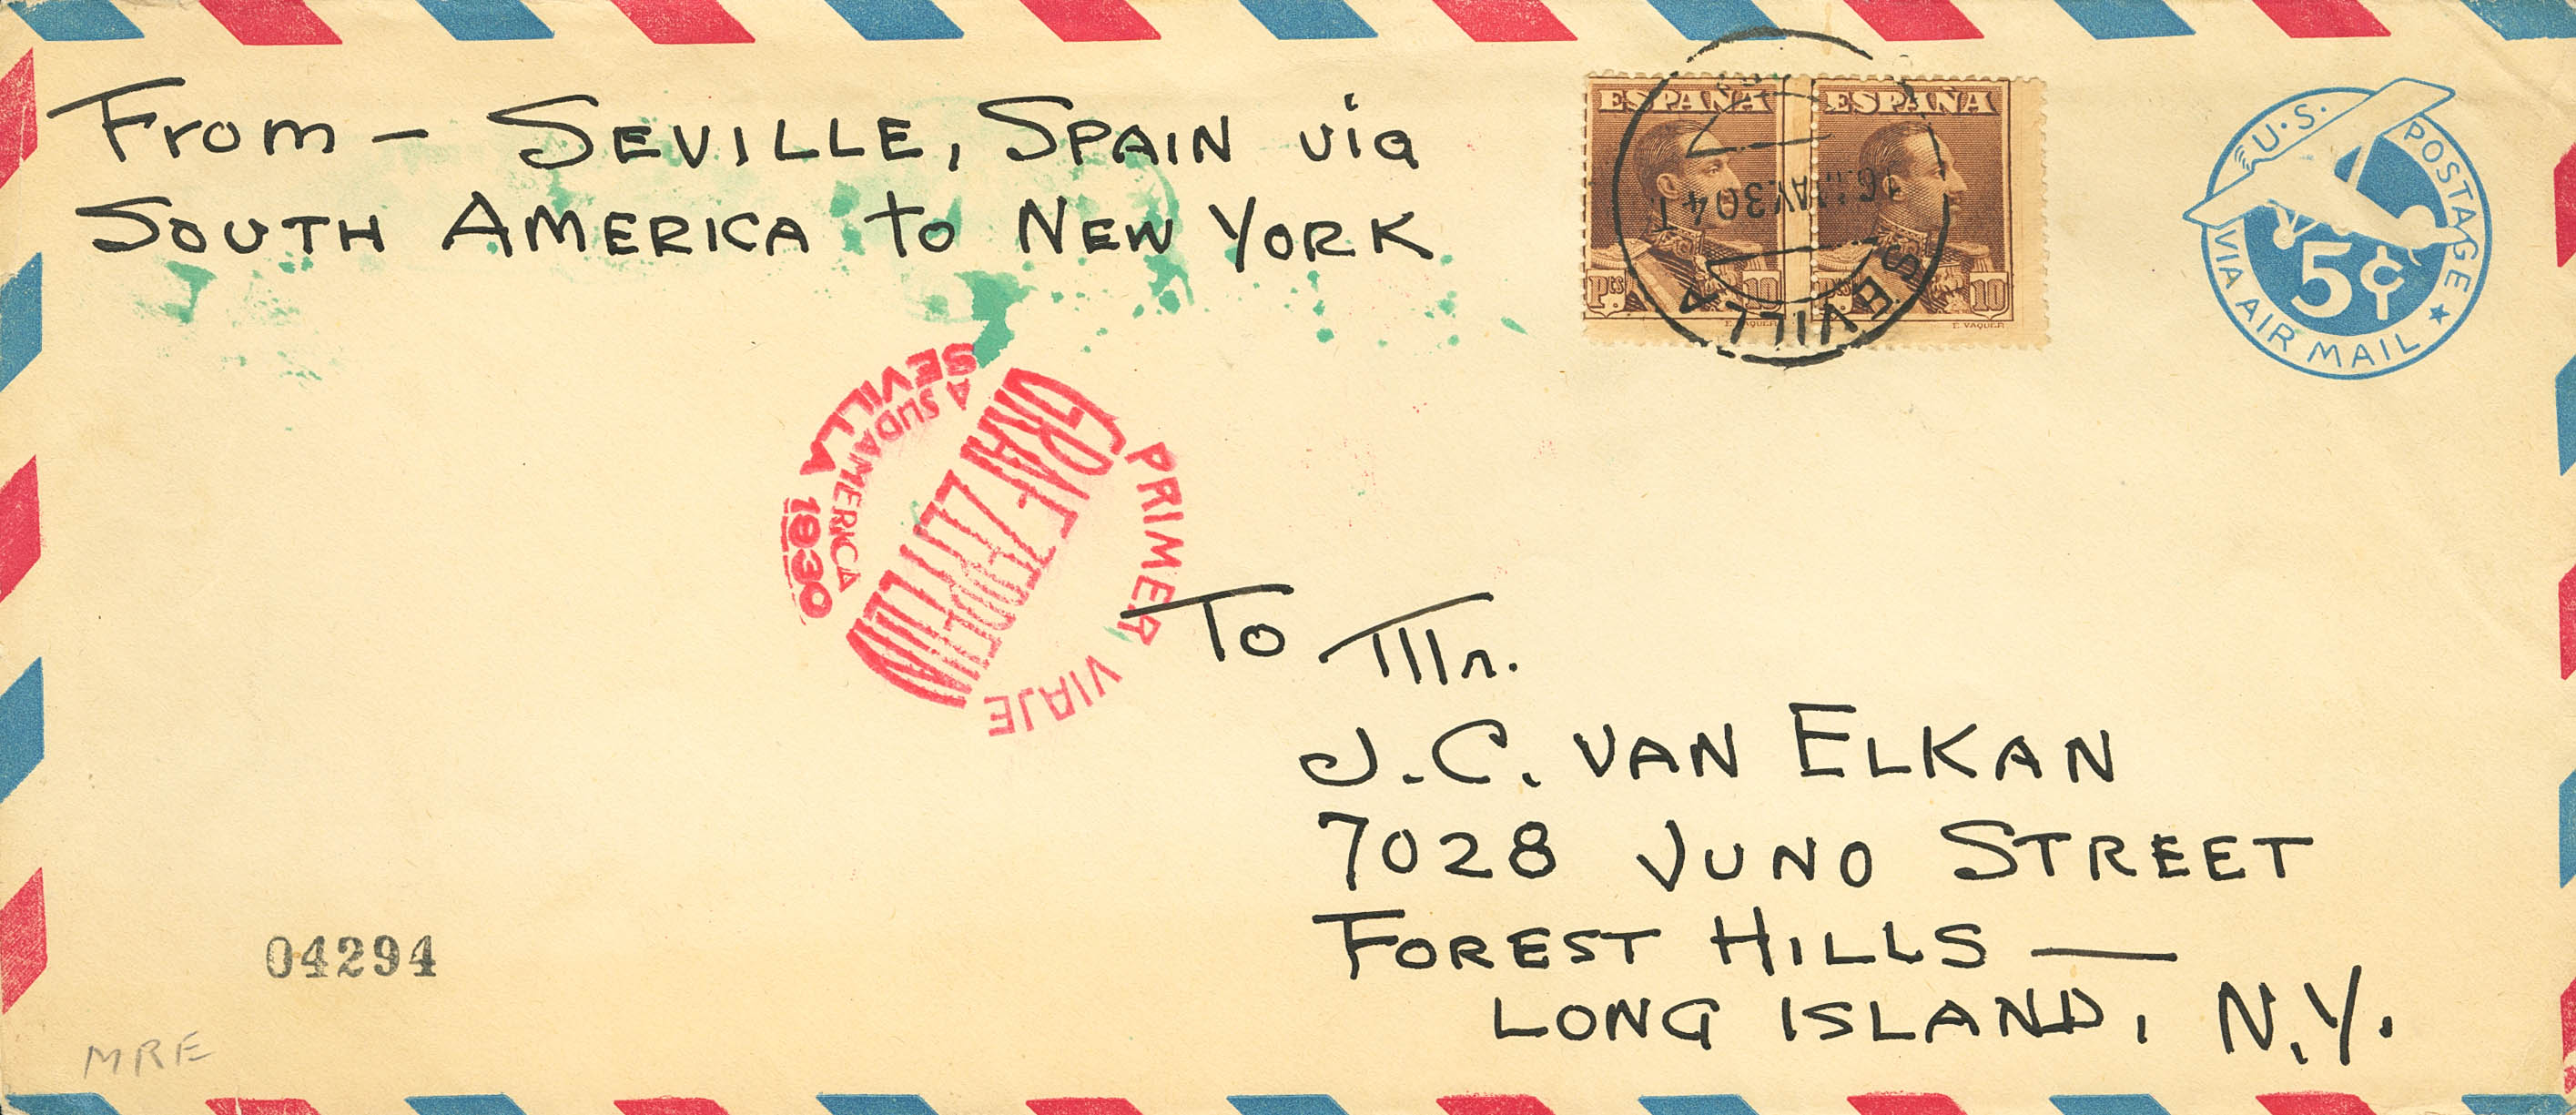 From - SEVILLE, SPAIN via
SOUTH AMERICA to NEW YORK
ESPAÑA
Pts 10
E. VAQUER
ESPAÑA
Pts 10
E. VAQUER
SEVILLA
16 MAY.30 4 T.
U.S. POSTAGE
5¢
VIA AIR MAIL
PRIMER VIAJE
GRAF ZEPPELIN
A SUDAMERICA
SEVILLA 1930
To Mr.
J.C. VAN ELKAN
7028 JUNO STREET
FOREST HILLS —
LONG ISLAND, N.Y.
04294
MRE